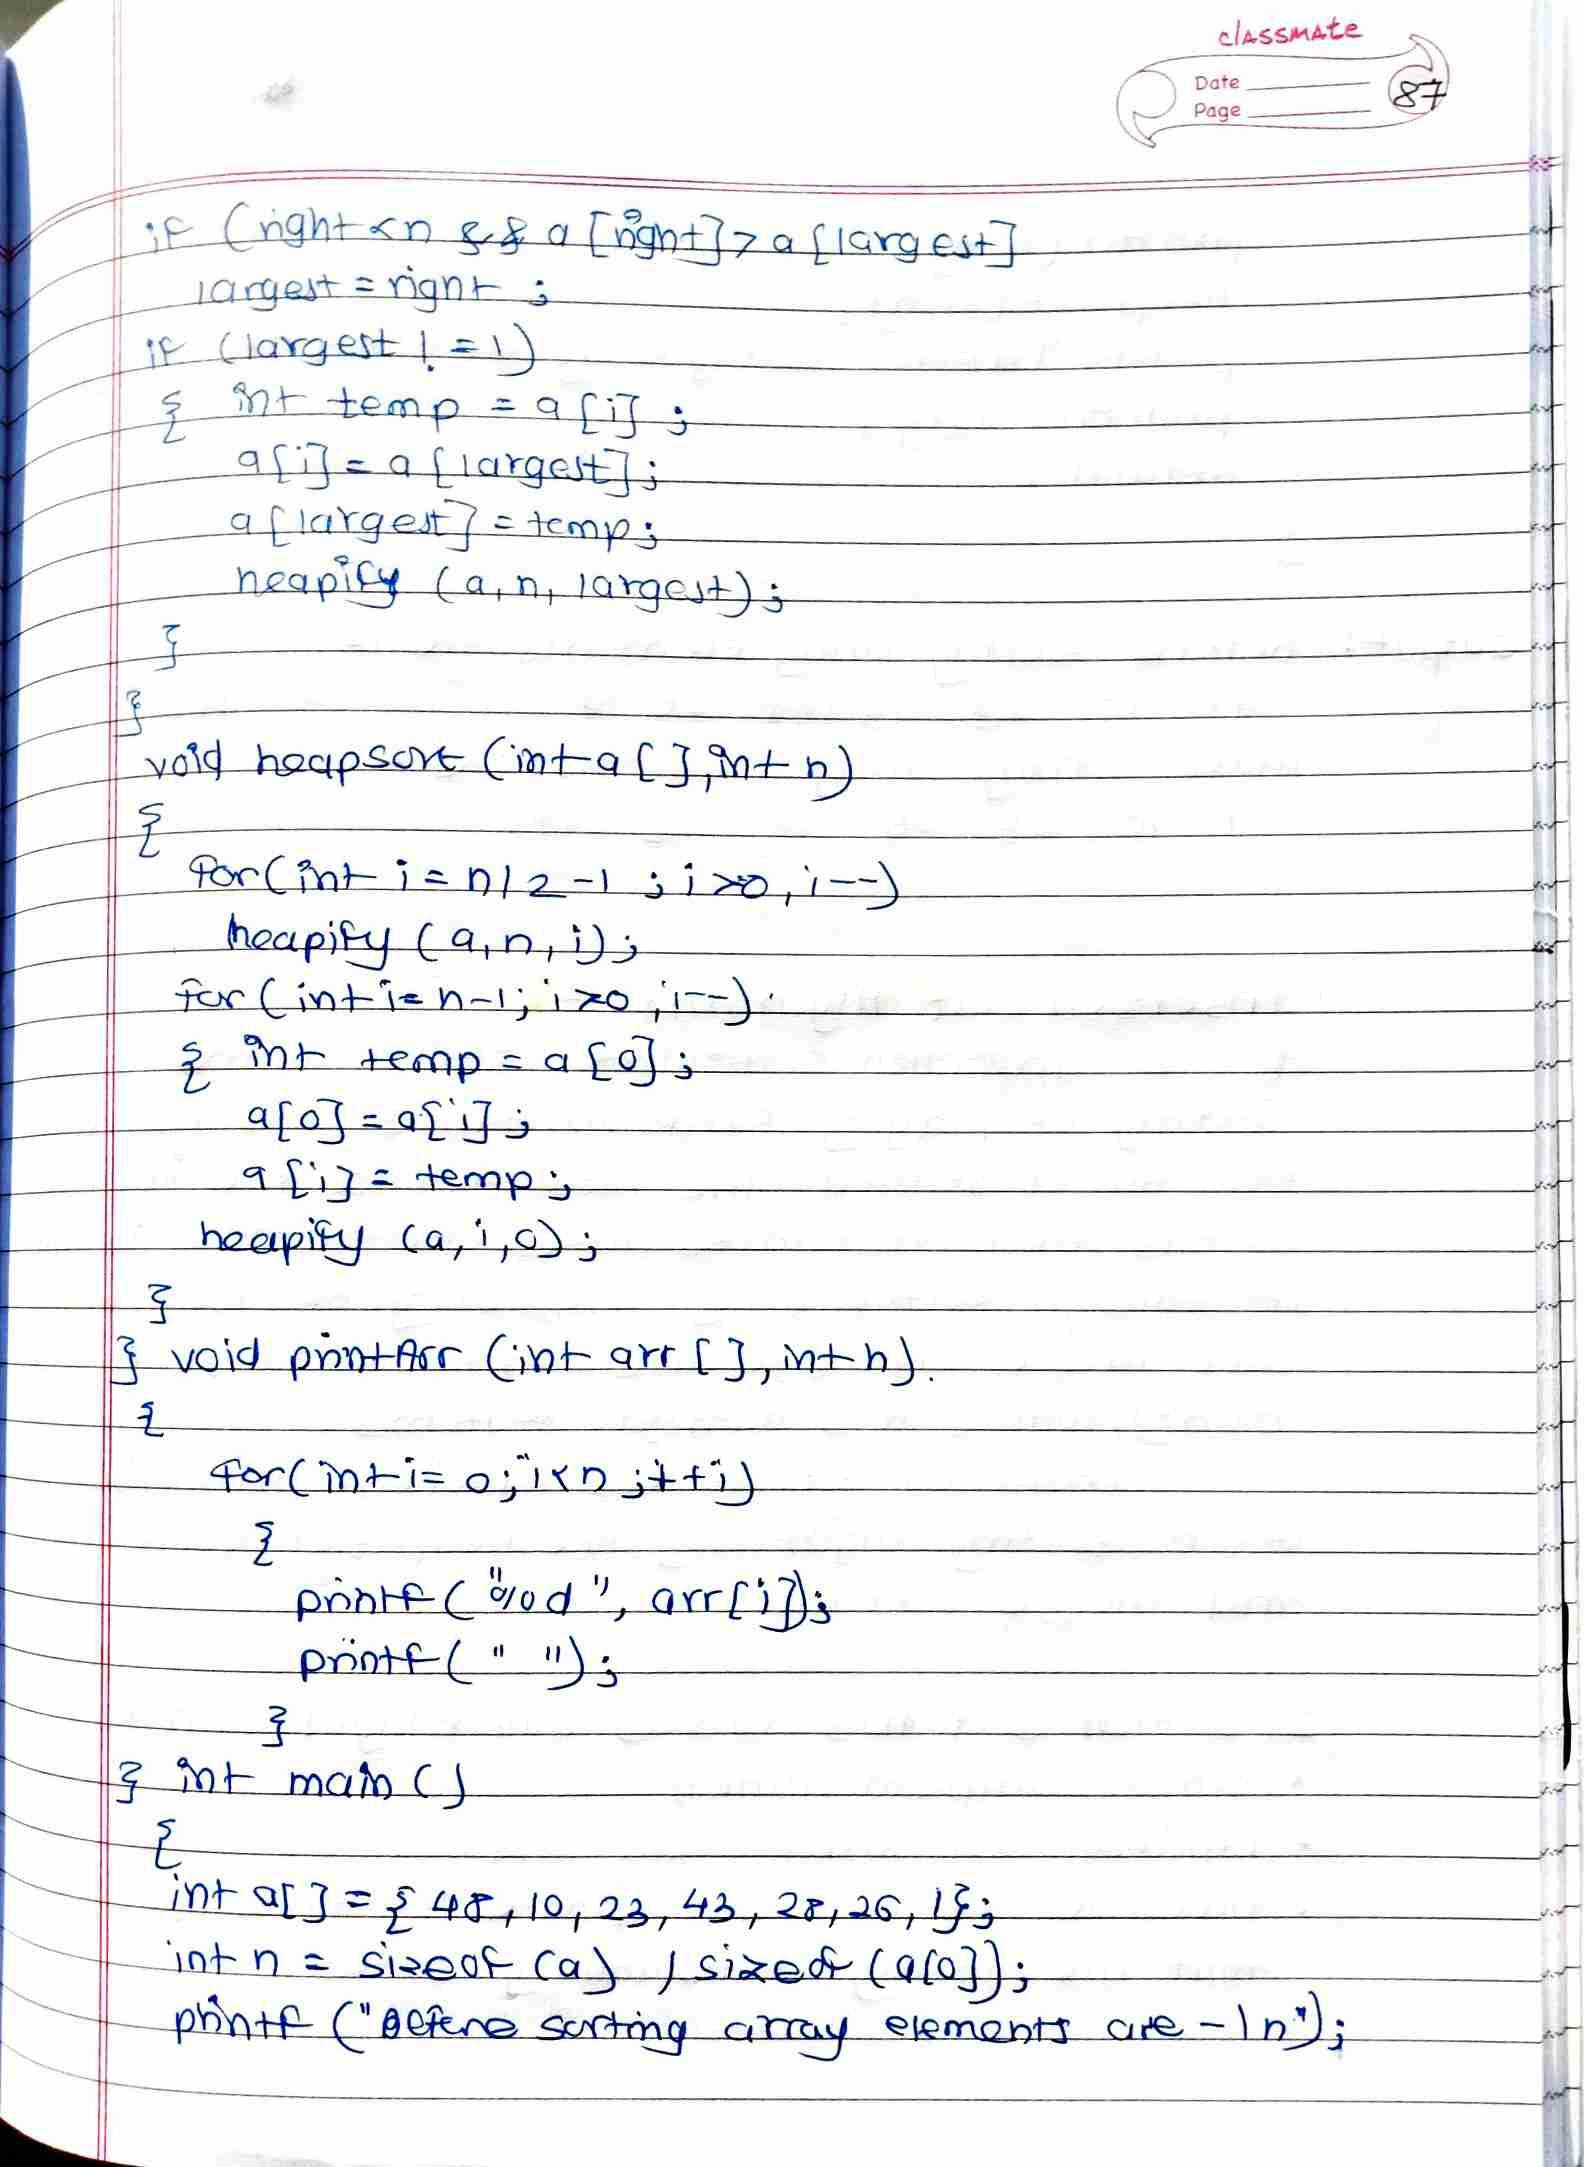 classmate
Date
Page
87
if (right <n && a [right] > a [largest]
largest = right ;
if (largest ! = 1)
{ int temp = a [i] ;
a[i] = a [largest];
a [largest] = temp;
heapify (a, n, largest);
}
}
void heapsort (int a [ ], int n)
{
for(int i = n/2 -1 ; i >0, i--)
heapify (a, n, i);
for (int i= n-1; i >0 , i--)
{ int temp = a [0] ;
a[0] = a[i] ;
a [i] = temp ;
heapify (a, i, 0) ;
}
} void printArr (int arr [ ], int n).
{
for(int i= 0; i<n ; ++i)
{
printf ("%d", arr[i]);
printf (" ");
}
} int main ()
{
int a[ ] = { 48, 10, 23, 43, 28, 26, 1};
int n = sizeof (a) / sizeof (a[0]);
printf ("Before sorting array elements are - \n");